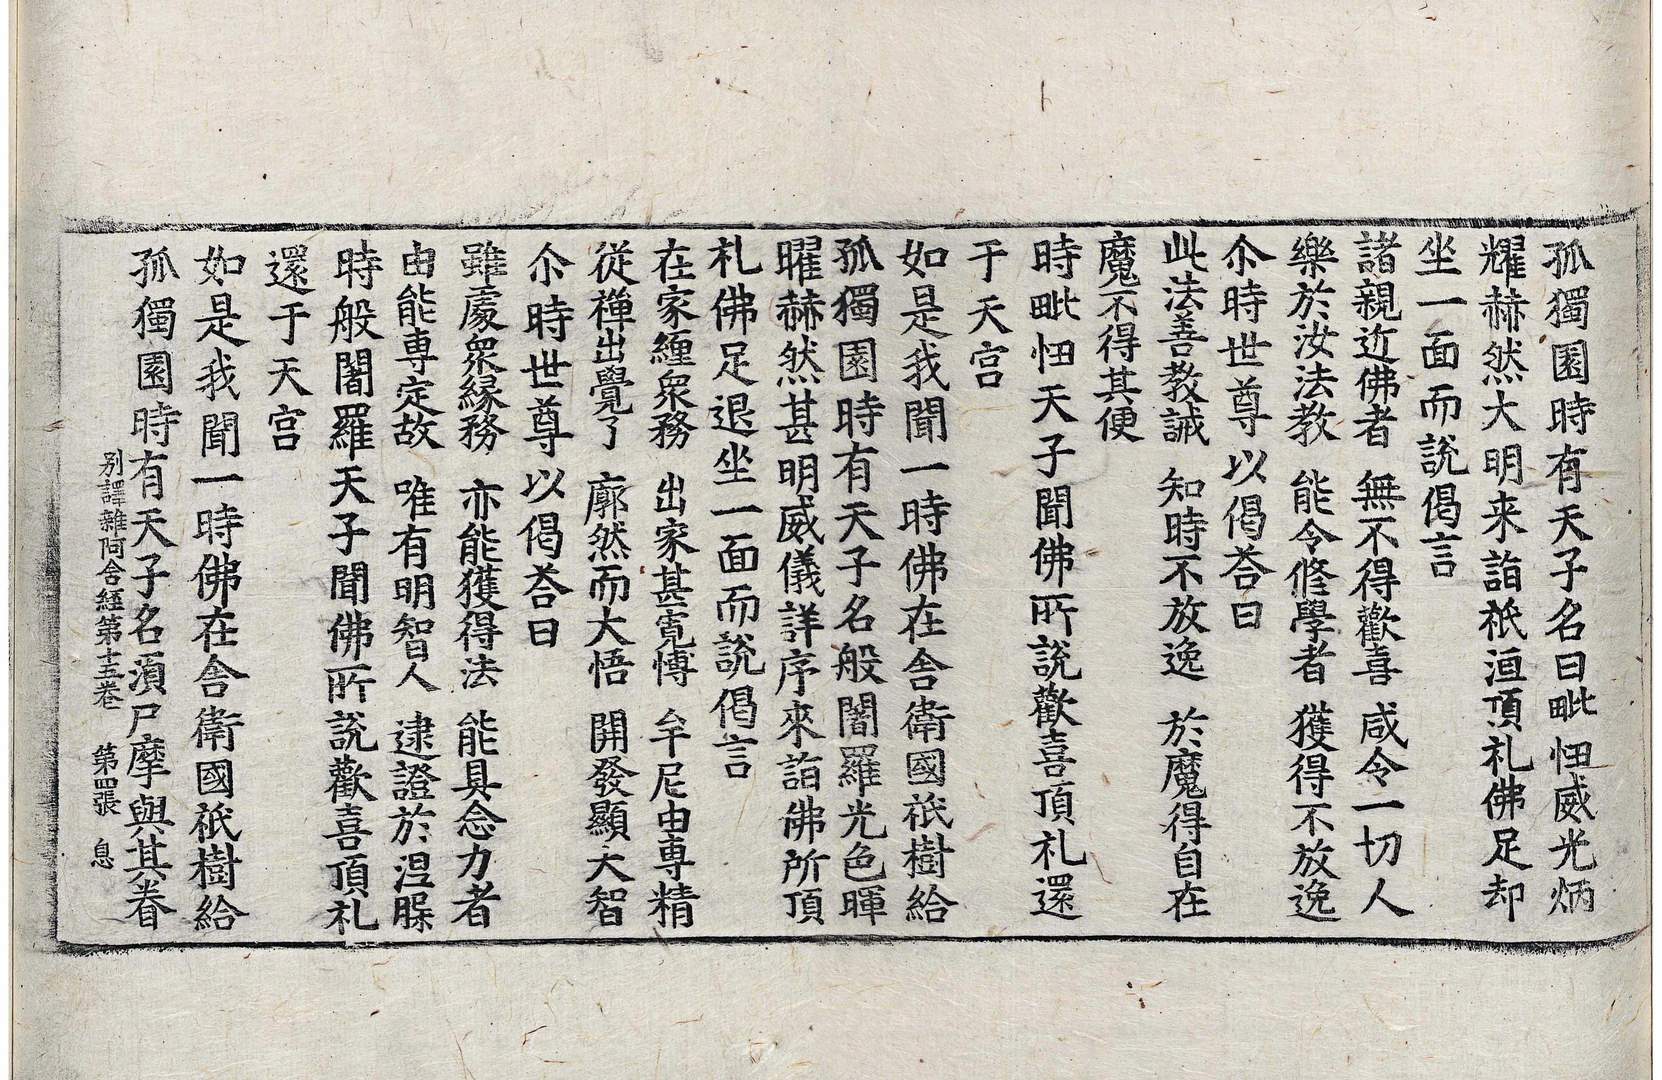 孤獨園時有天子名曰毗忸威光炳
耀赫然大明来詣祇洹頂礼佛足却
坐一面而說偈言
諸親近佛者 無不得歡喜 咸令一切人
樂於汝法教 能令修學者 獲得不放逸
尒時世尊以偈荅曰
此法善教誡 知時不放逸 於魔得自在
魔不得其便
時毗忸天子聞佛所說歡喜頂礼還
于天宫
如是我聞一時佛在舍衛國祇樹給
孤獨園時有天子名般闍羅光色暉
曜赫然甚明威儀詳序來詣佛所頂
礼佛足退坐一面而說偈言
在家纏衆務 出家甚寬博 牟尼由專精
從禪出覺了 廓然而大悟 開發顯大智
尒時世尊以偈荅曰
雖處衆緣務 亦能獲得法 能具念力者
由能専定故 唯有明智人 逮證於涅槃
時般闍羅天子聞佛所說歡喜頂礼
還于天宫
如是我聞一時佛在舍衛國祇樹給
孤獨園時有天子名湏尸摩與其眷
別譯雜阿含経第十五卷 第四張 息